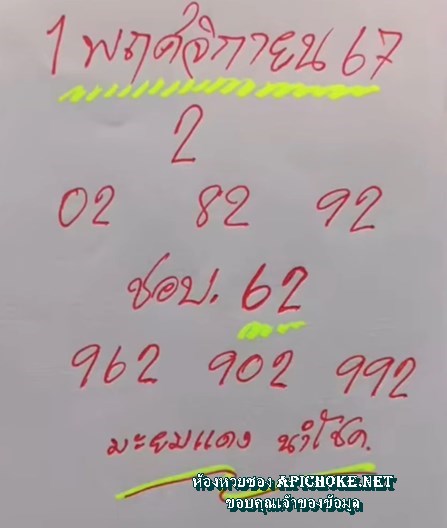 1 พฤศจิกายน 67
2
02 82 92
ชอบ. 62
962 902 992
มะยมแดง นำโชค.
ห้องหวยซอง APICHOKE.NET
ขอบคุณเจ้าของข้อมูล